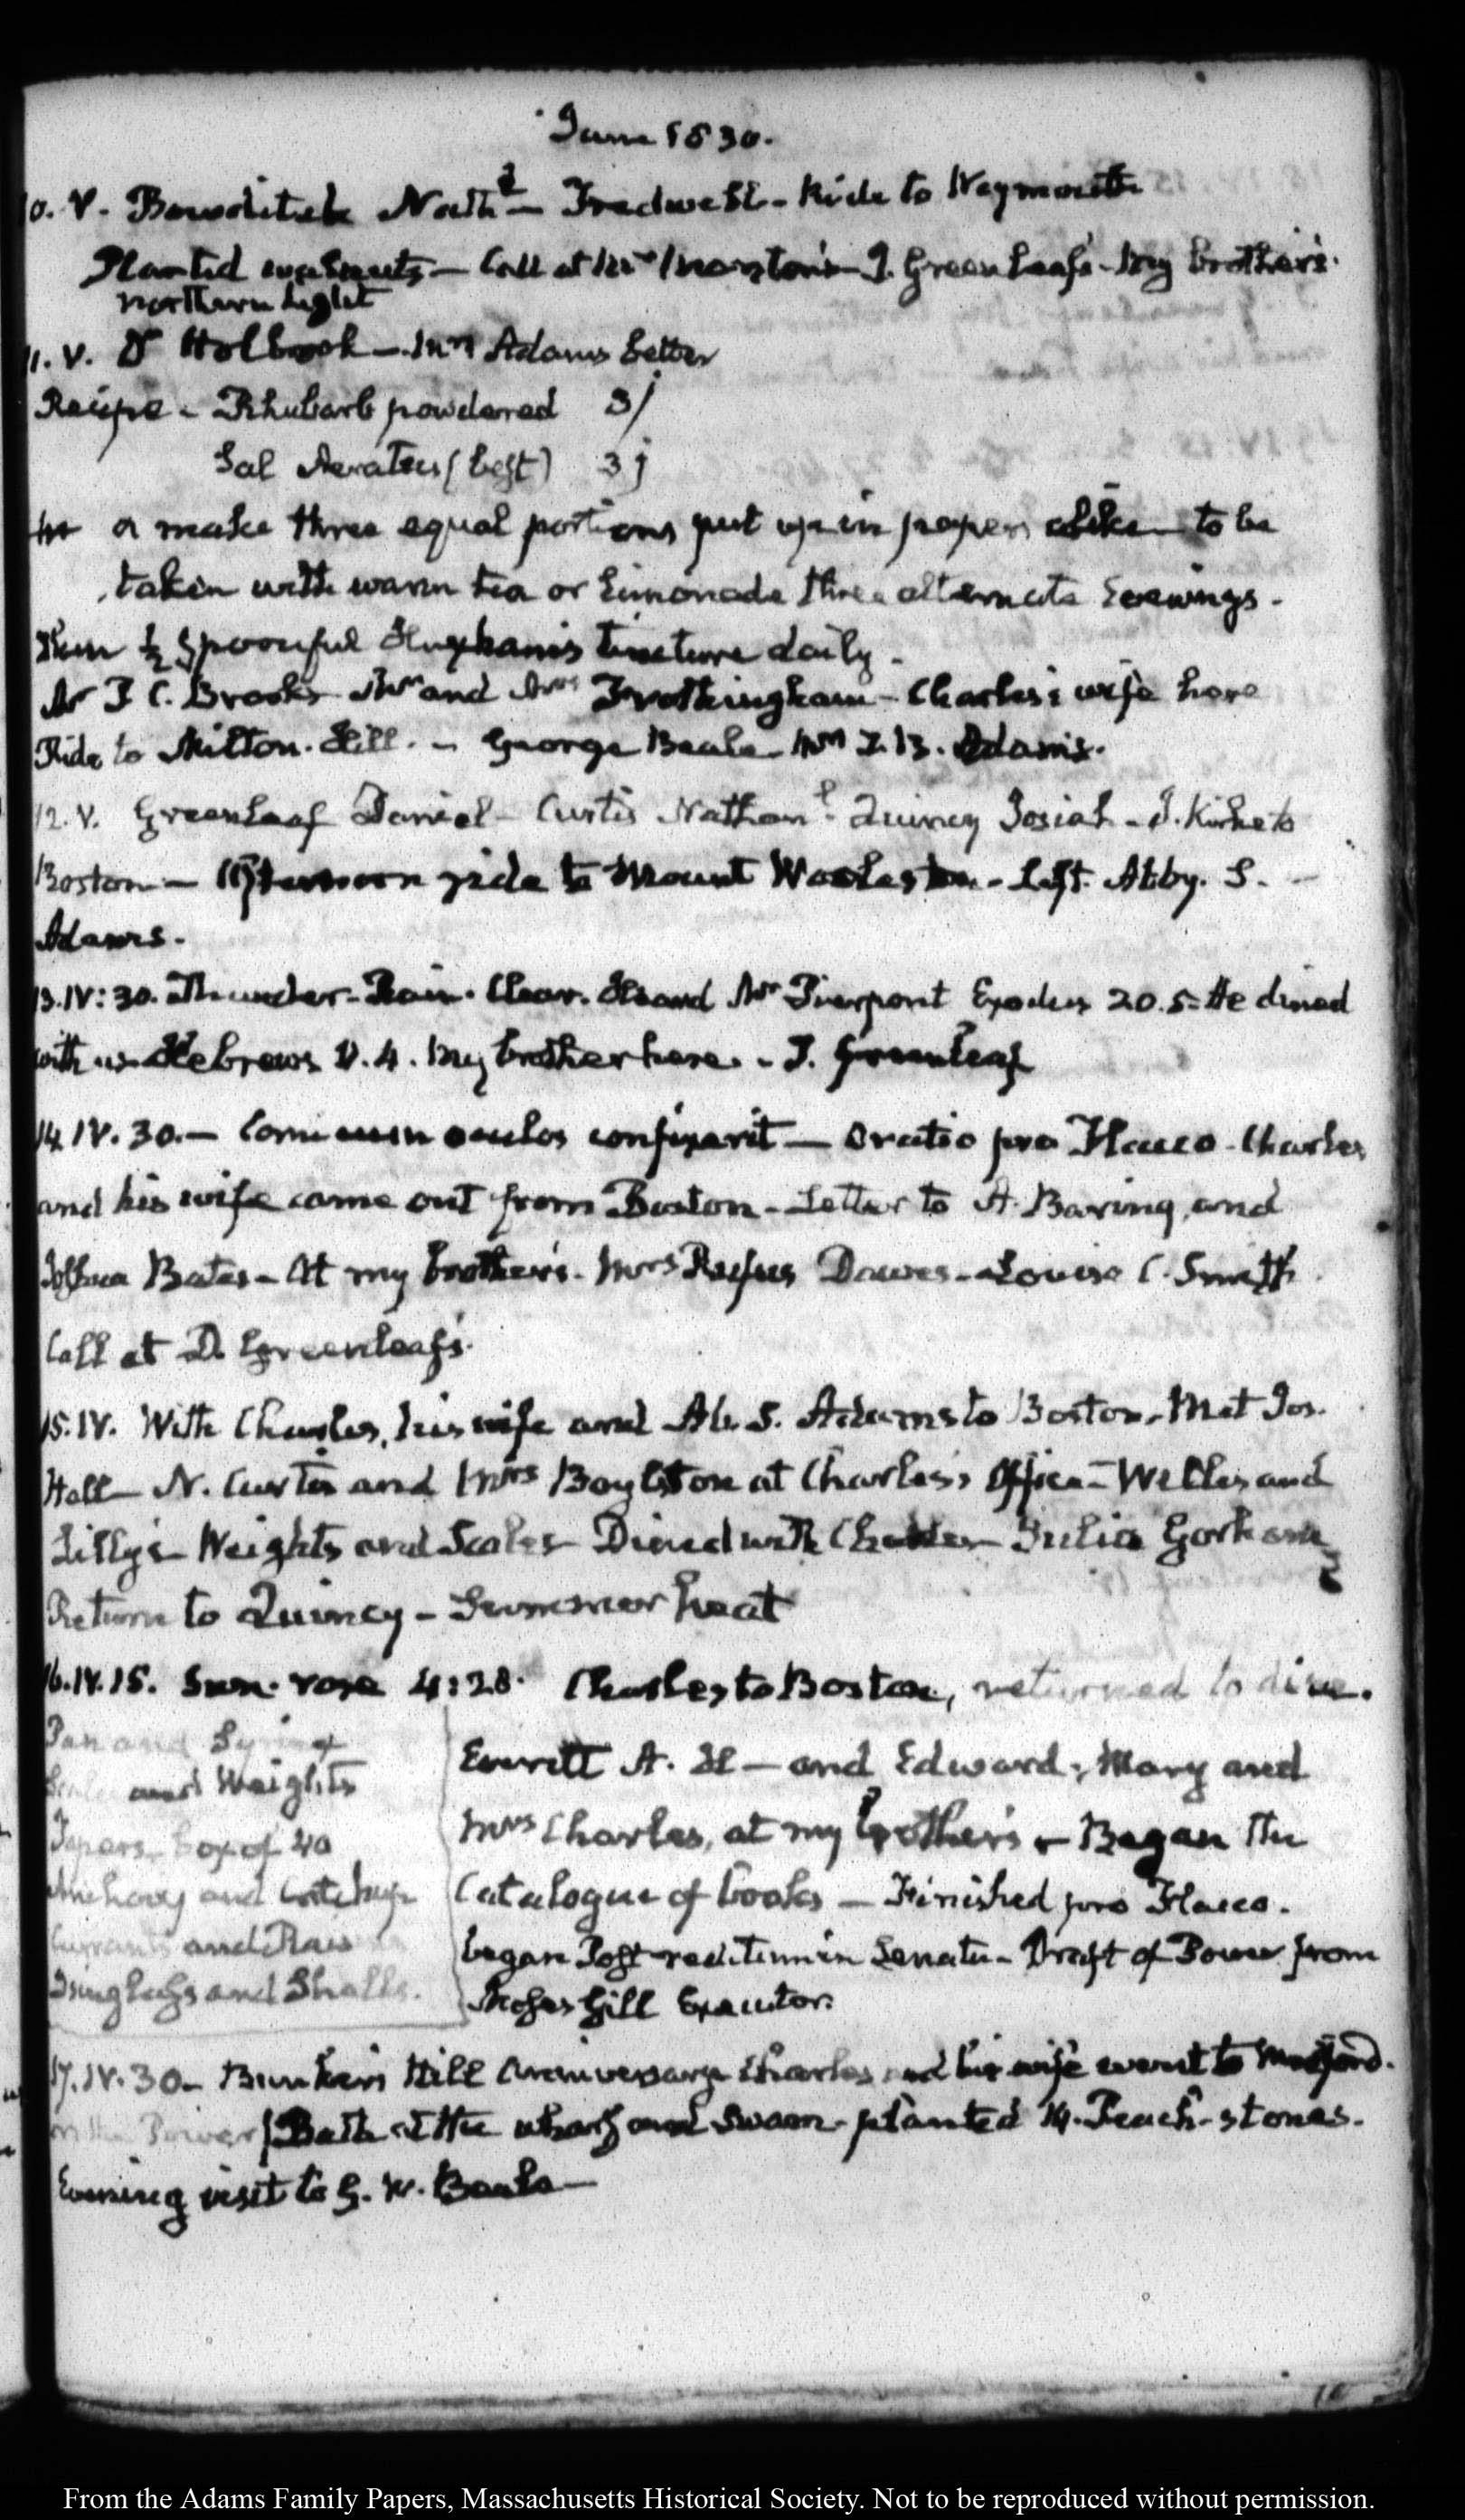 June 1830.
10. V. Bowditch Nath.l — Treadwell — Ride to Weymouth
Planted walnuts — Call at Mrs Marston's — T. Greenleaf's — My brother's.
Northern Light
11. V. Dr Holbrook — Mrs Adams better
Recipe — Rhubarb powdered ʒj
Sal Aeratus (best) ʒj
make three equal portions put up in papers to be
taken with warm tea or Limonade three alternate Evenings.
Then ½ Spoonful Huxham's tincture daily.
Mr P. C. Brooks Mr and Mrs Frothingham — Charles's wife here
Ride to Milton Hill. — George Beale — Mrs T. B. Adams.
12. V. Greenleaf Daniel — Curtis Nathan.l — Quincy Josiah — J. Kirk to
Boston — Afternoon ride to Mount Wollaston — Left Abby. S.
Adams.
13. IV: 30. Thunder — Rain. Clear. Heard Mr Pierpont Exodus 20. 5. He dined
with us. Hebrews V. 4. My brother here. — T. Greenleaf
14 IV. 30. — Cornicum oculos confixerit — Oratio pro Flacco — Charles
and his wife came out from Boston — Letter to A. Baring, and
Joshua Bates — At my brother's. Mrs Rufus Dawes — Louisa C. Smith
Call at D. Greenleaf's.
15. IV. With Charles, his wife and Ab. S. Adams to Boston. Met Jos.
Hall — N. Curtis and Mrs Boylston at Charles's Office — Welles and
Lilly's Weights and Scales — Dined with Charles — Julia Gorham
Return to Quincy — Summer heat
16. IV. 15. Sun rose 4:28. Charles to Boston, returned to dine.
Pan and Syringe
Scales and Weights
Tapers — box of 40
Anchovy and Catchup
Currants and Raisins
Isinglass and Shells.
Everett A. H — and Edward, Mary and
Mrs Charles, at my brother's — Began the
Catalogue of books — Finished pro Flacco.
began Post reditum in Senatu — Draft of Power from
Moses Gill Executor.
17. IV. 30 — Bunker's Hill Anniversary Charles and his wife went to Medford.
on the Power | Bath at the wharf and Swam — planted 14. Peach-stones.
Evening visit to G. W. Beale —
From the Adams Family Papers, Massachusetts Historical Society. Not to be reproduced without permission.